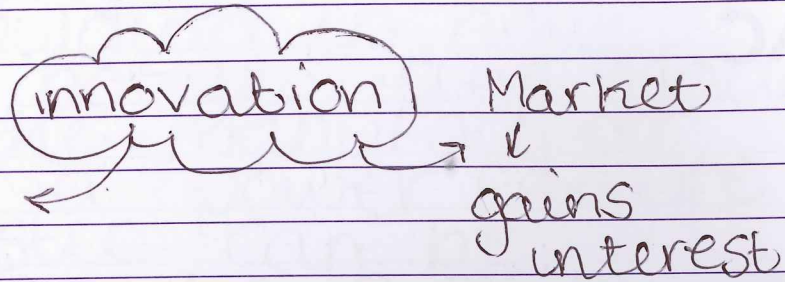 innovation Market
gains
interest